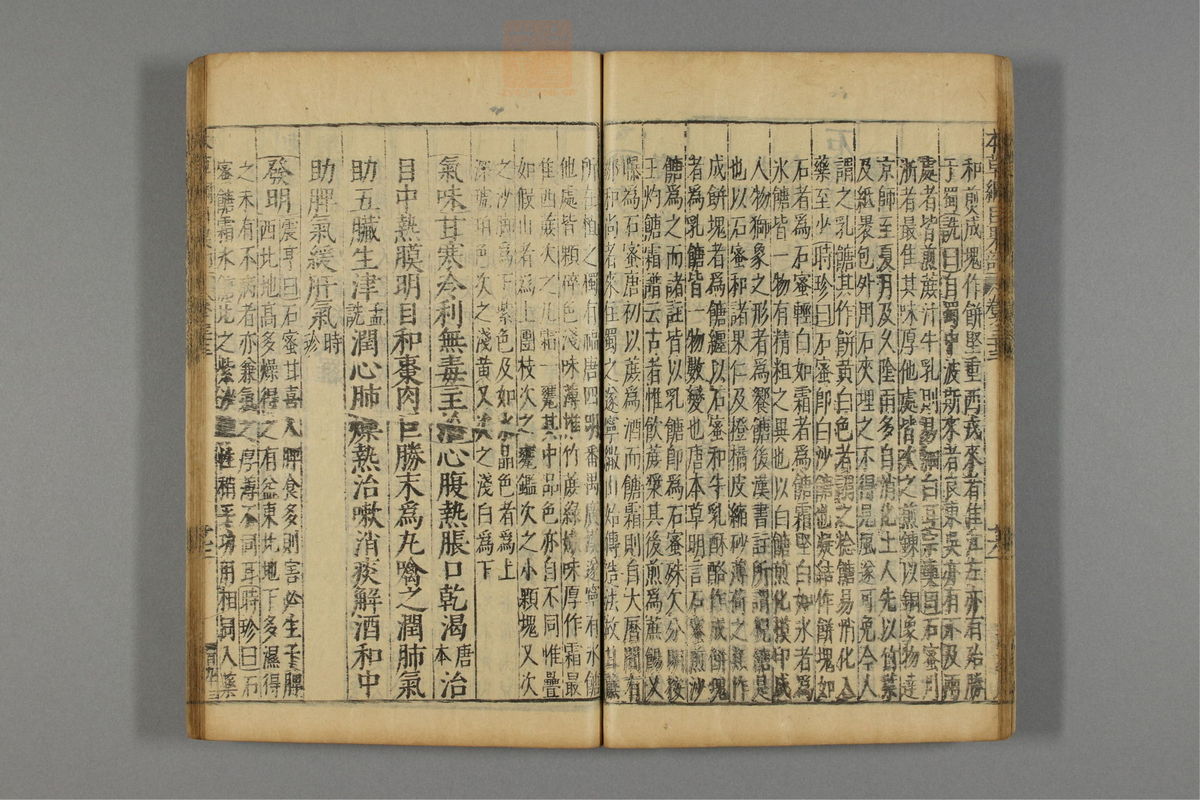 和煎成塊作餅堅重西戎來者佳江左亦有殆勝
于蜀詵曰自蜀中波斯來者良東吳亦有不及兩
處者皆煎蔗汁牛乳則易細白耳宗奭曰石蜜川
浙者最佳其味厚他處皆次之煎鍊以銅象物達
京師至夏月及久陰雨多自消化土人先以竹葉
及紙裹包外用石灰埋之不得見風遂可免今人
謂之乳餹其作餅黃白色者謂之捻餹易消化入
藥至少時珍曰石蜜即白沙餹也凝結作餅塊如
石者為石蜜輕白如霜者為餹霜堅白如冰者為
冰餹皆一物有精粗之異也以白餹煎化模印成
人物獅象之形者為饗餹後漢書註所謂猊餹是
也以石蜜和諸果仁及橙橘皮縮砂薄荷之類作
成餅塊者為餹纏以石蜜和牛乳酥酪作成餅塊
者為乳餹皆一物數變也唐本草明言石蜜煎沙
餹為之而諸註皆以乳餹即為石蜜殊欠分明按
王灼餹霜譜云古者惟飲蔗漿其後煎為蔗餳又
曝為石蜜唐初以蔗為酒而餹霜則自大曆間有
鄒和尚者來住蜀之遂寧繖山始傳造法故甘蔗
所在植之獨有福唐四明番禺廣漢遂寧有冰餹
他處皆顆碎色淺味薄惟竹蔗綠嫩味厚作霜最
佳西蔗次之凡霜一甕其中品色亦自不同惟疊
如假山者為上團枝次之甕鑑次之小顆塊又次
之沙腳為下紫色及如水晶色者為上
深琥珀色次之淺黃又次之淺白為下
氣味甘寒冷利無毒主治心腹熱脹口乾渴唐本治
目中熱膜明目和棗肉巨勝末為丸噙之潤肺氣
助五臟生津孟詵潤心肺燥熱治嗽消痰解酒和中
助脾氣緩肝氣時珍
發明震亨曰石蜜甘喜入脾食多則害必生于脾
西北地高多燥得之有益東南地下多濕得
之未有不病者亦兼氣之厚薄不同耳時珍曰石
蜜餹霜冰餹比之紫沙餹性稍平功用相同入藥